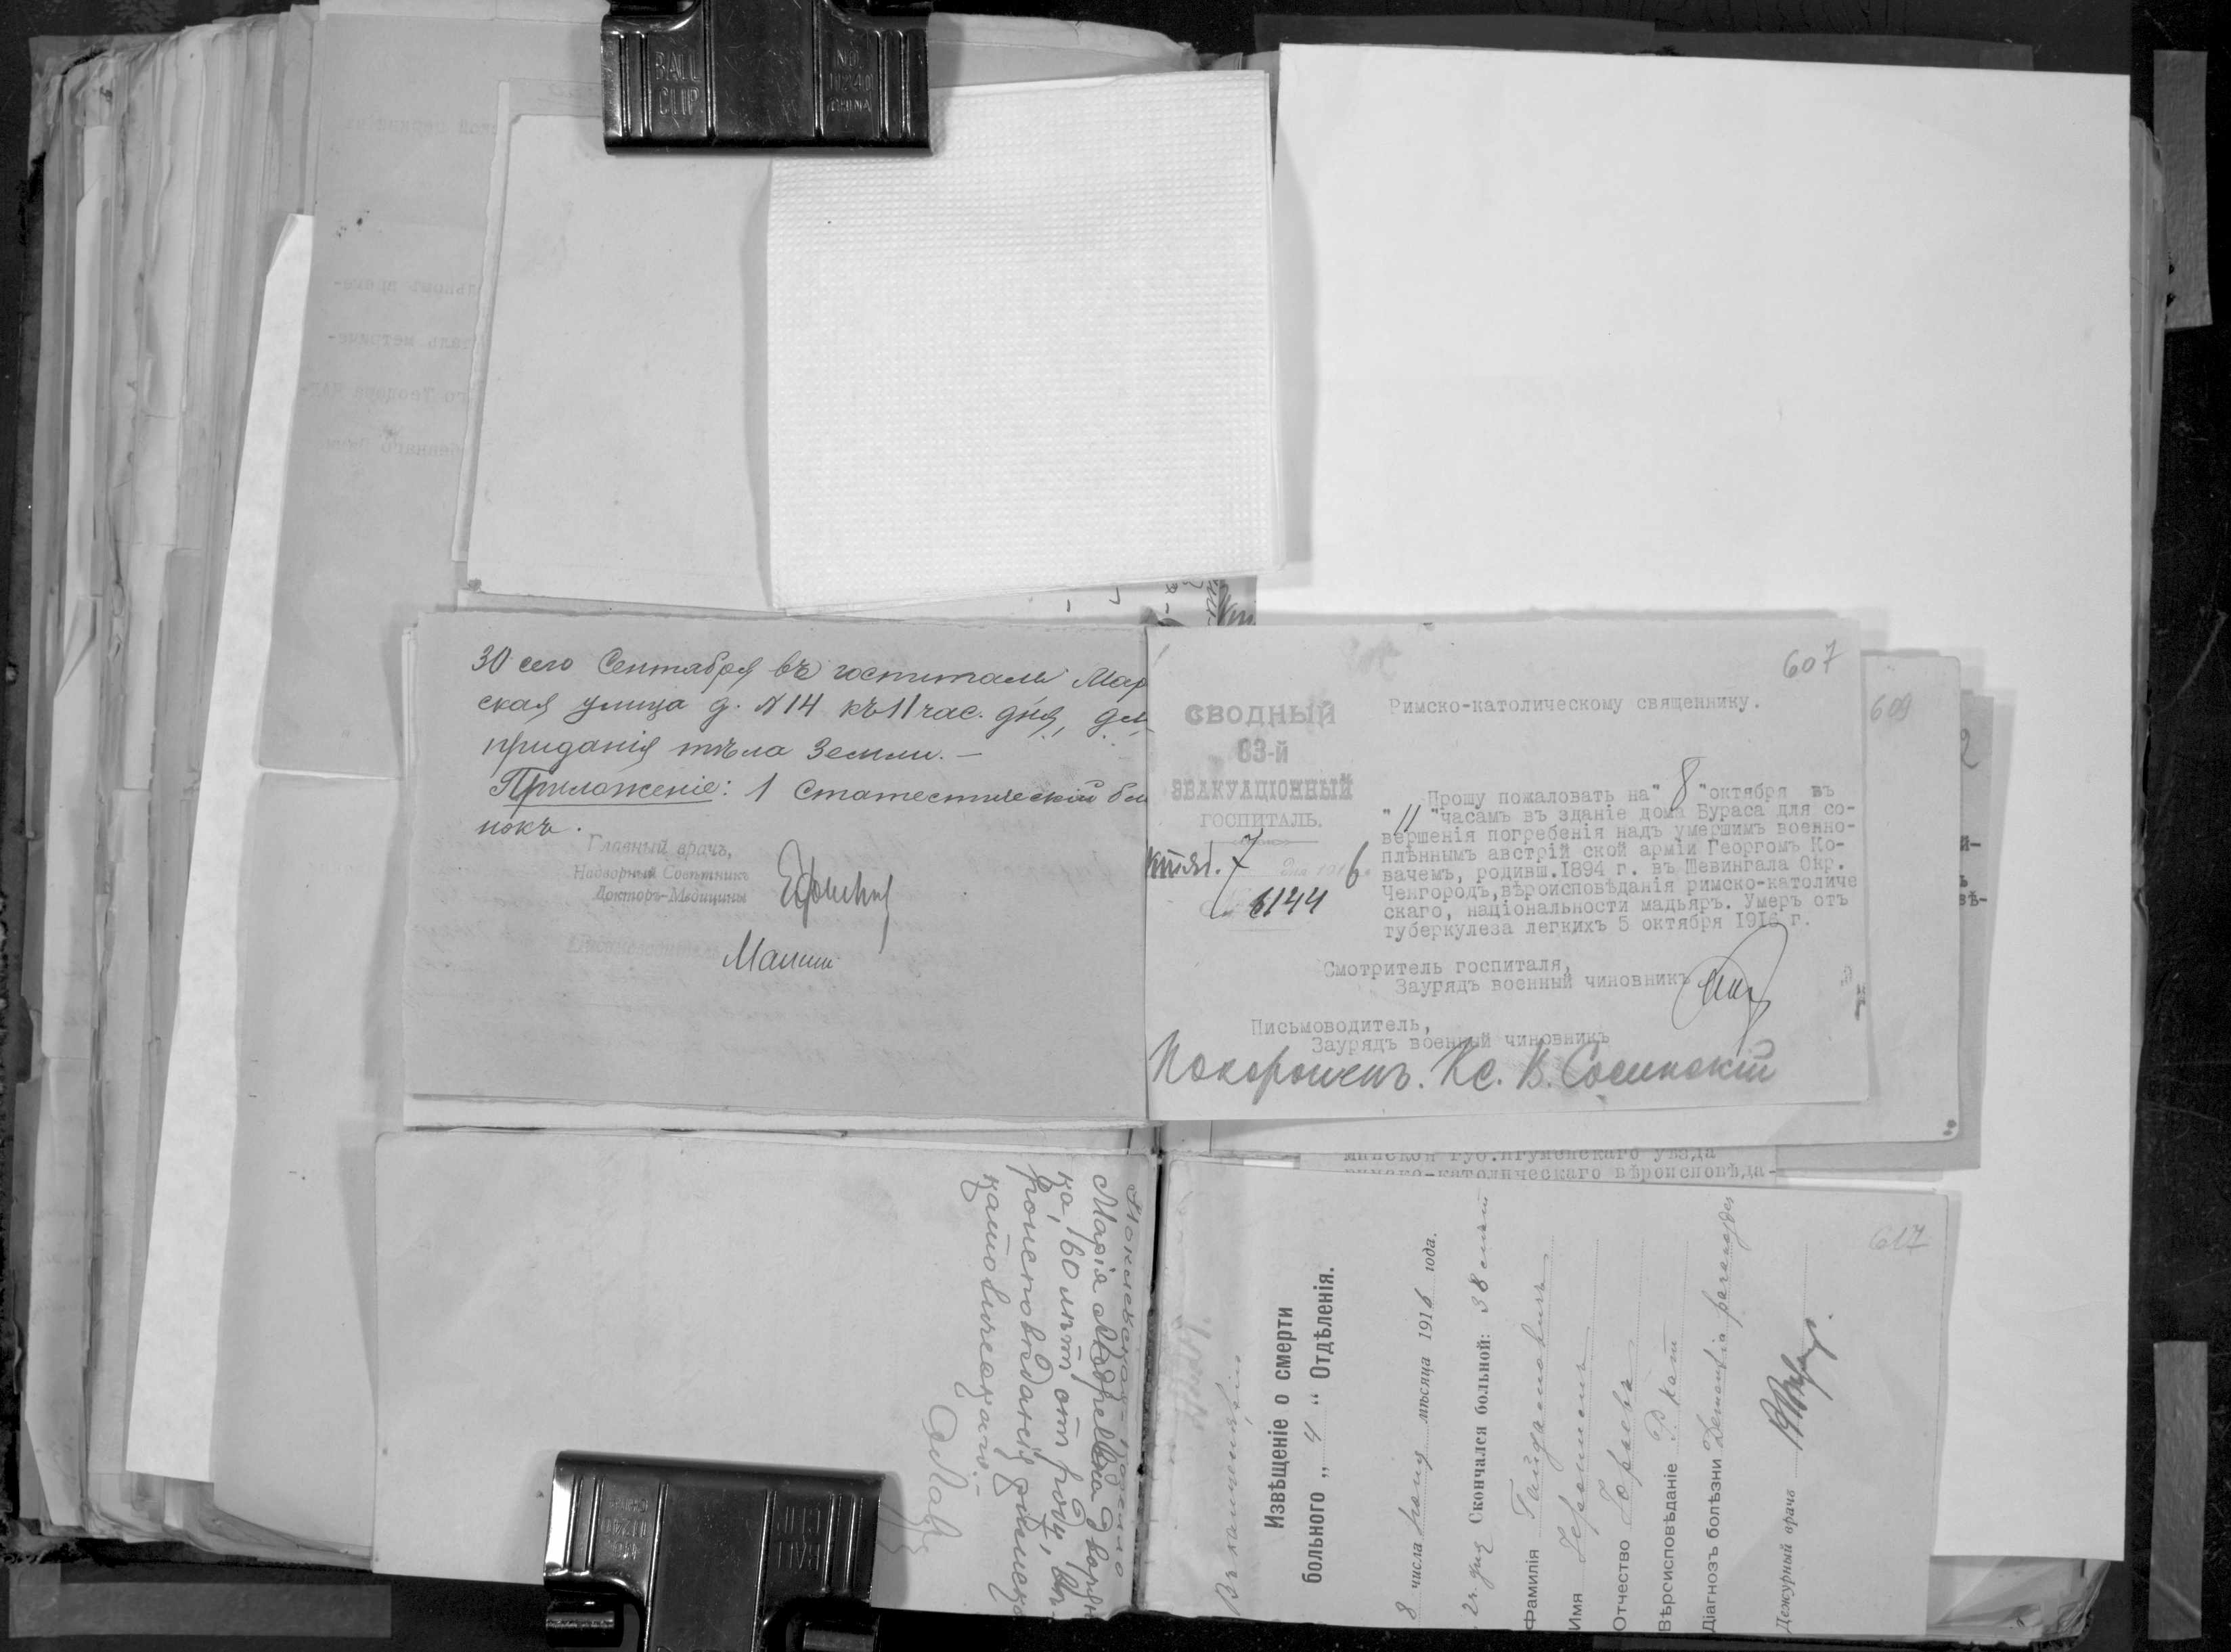 BALL
CLIP
NO.
11240
CHINA
30 сего Сентября въ госпиталь Мар
ская улица д. № 14 къ 11 час. дня, для
приданія тѣла Земли. —
Приложеніе: 1 Статестическій бла
нокъ.
Главный врачъ,
Надворный Совѣтникъ
Докторъ-Медицины
607
СВОДНЫЙ
83-й
ЭВАКУАЦІОННЫЙ
ГОСПИТАЛЬ.
7
дня 1916
6144
Римско-католическому священнику.
Прошу пожаловать на" 8 "октября въ
" 11 "часамъ въ зданіе дома Бураса для со-
вершенія погребенія надъ умершимъ военно-
плѣннымъ австрій ской арміи Георгомъ Ко-
вачемъ, родивш.1894 г. въ Шевингала Окр.
Ченгородъ,вѣроисповѣданія римско-католиче
скаго, національности мадьяръ. Умеръ отъ
туберкулеза легкихъ 5 октября 1916 г.
Смотритель госпиталя,
Заурядъ военный чиновникъ
Письмоводитель,
Заурядъ военный чиновникъ
Похороненъ. Кс. В. Сосинскій
609
минской губ.игуменскаго уѣзда
римско-католическаго вѣроисповѣда-
Марія
ка, 60 лѣтъ, отъ роду, вѣ-
роисповѣданія римско
католическаго.
617
Извѣщеніе о смерти
больного „ 4 “ Отдѣленія.
8 числа мѣсяца 1916 года.
2 ч. дня Скончался больной: 38 лѣтъ
Фамилія Гайдамовичъ
Имя Іеронимъ
Отчество
Вѣроисповѣданіе Р. кат
Діагнозъ болѣзни Dementia paranoides
Дежурный врачъ